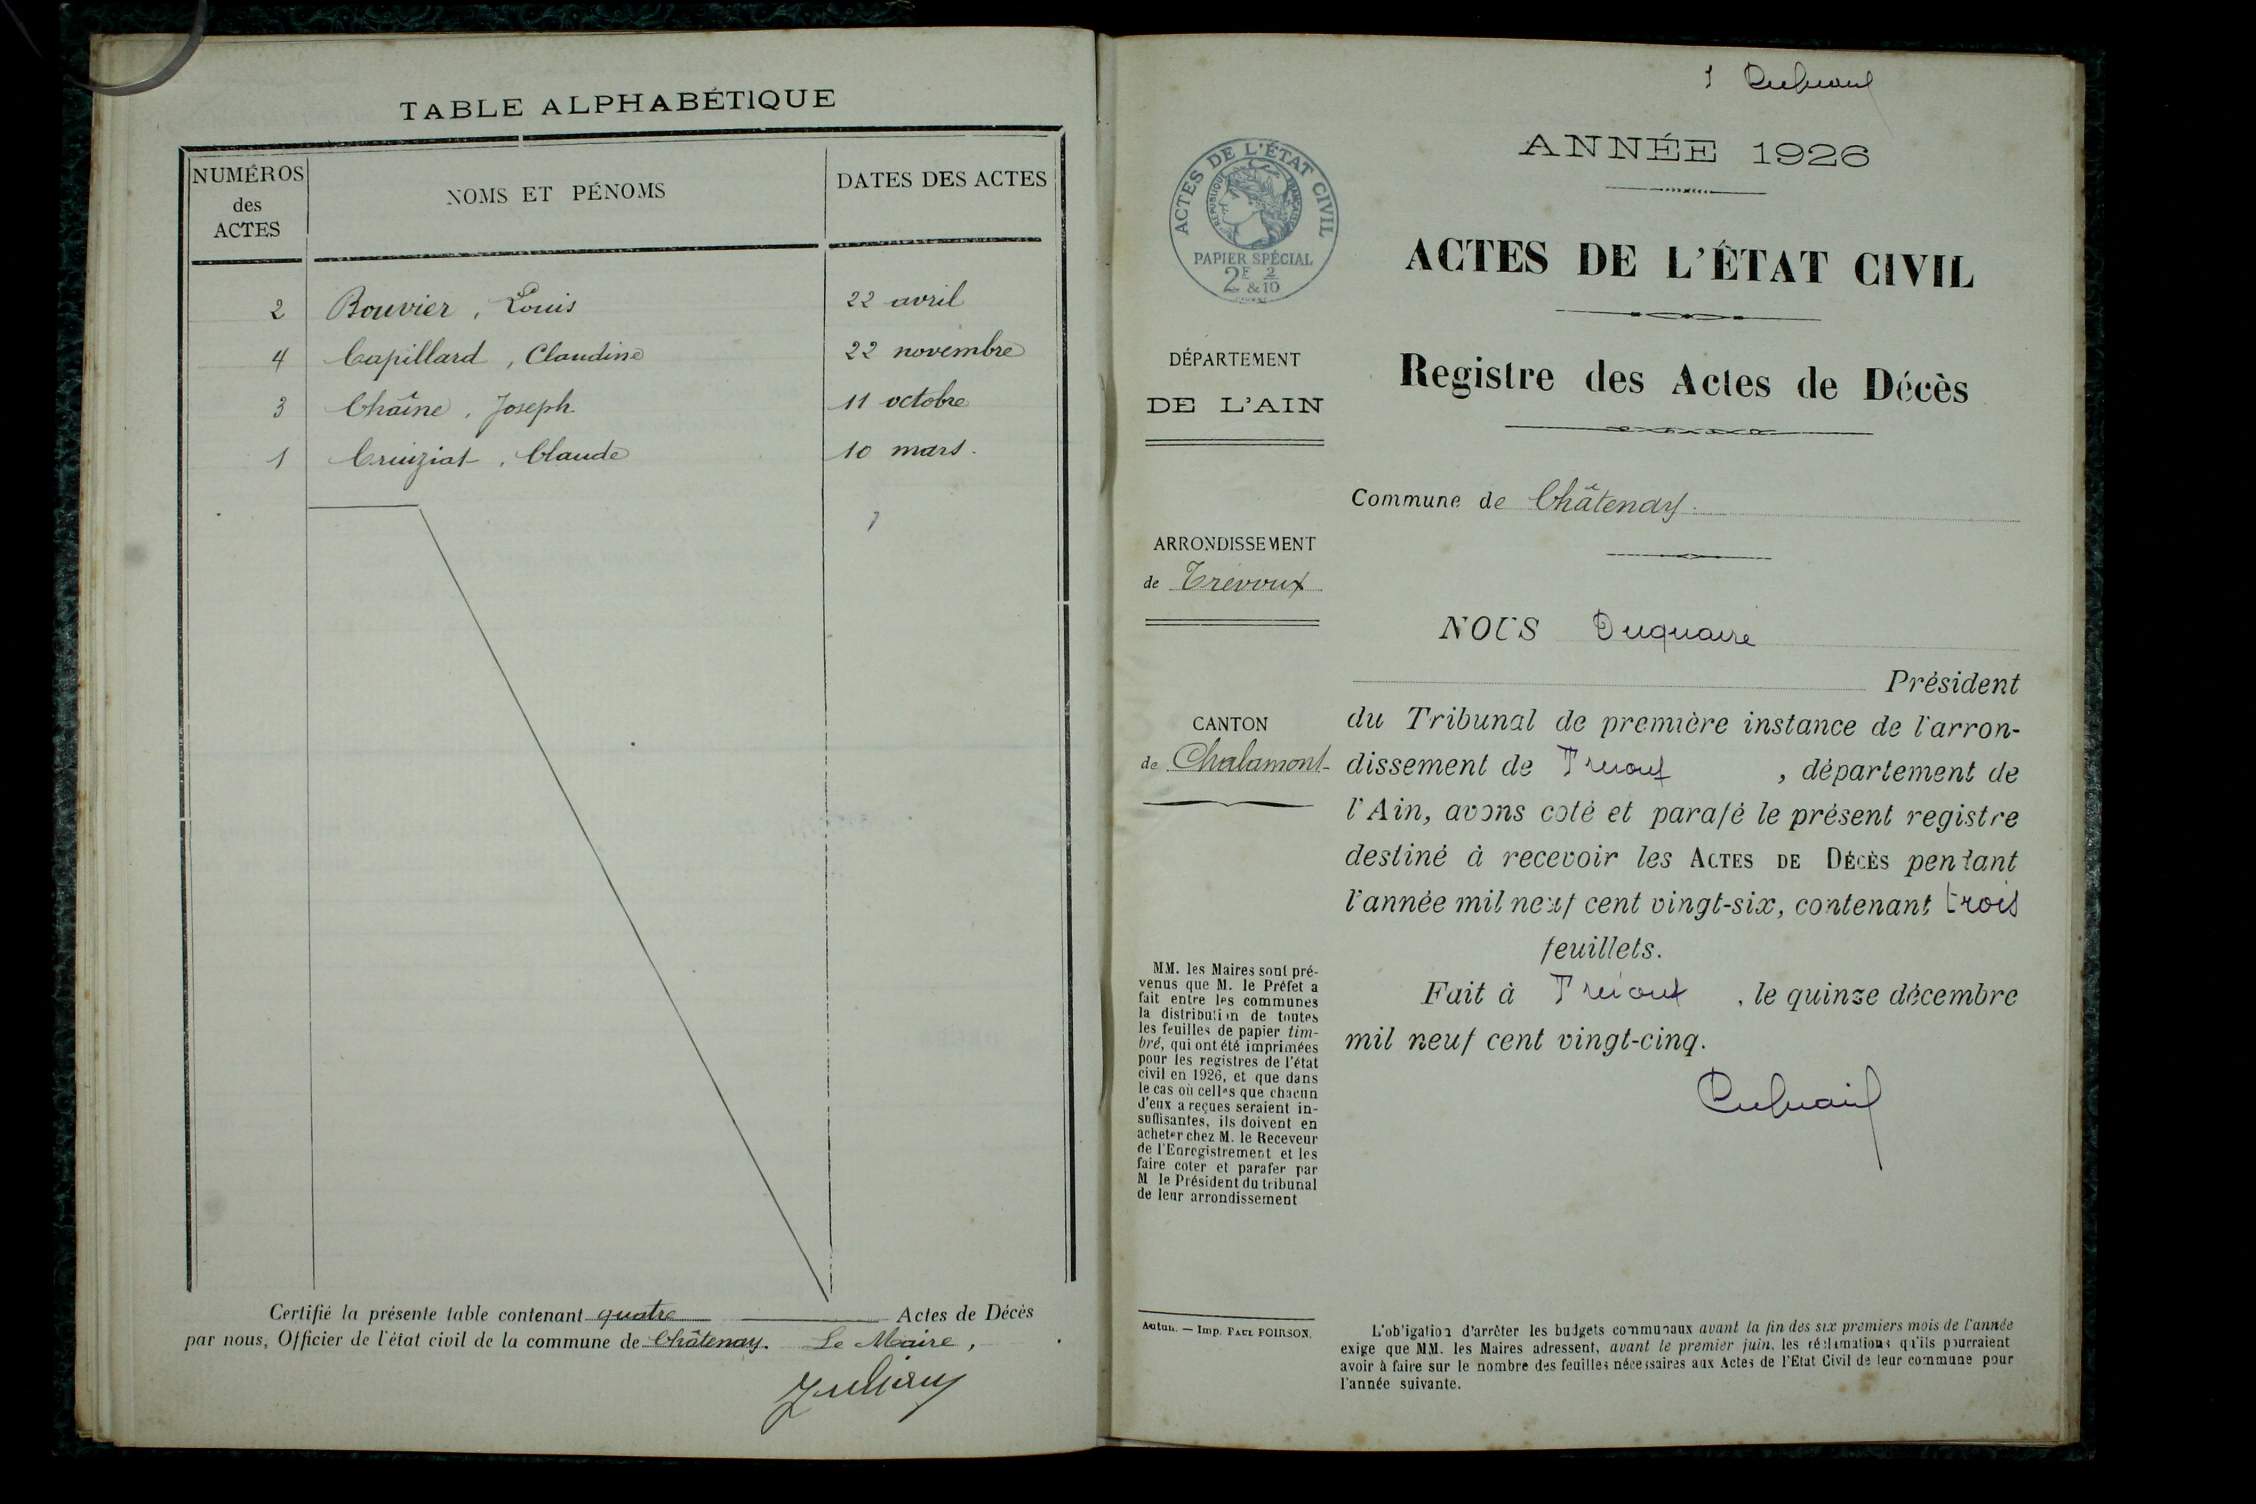 TABLE ALPHABÉTIQUE
NUMÉROS
des
ACTES
NOMS ET PÉNOMS
DATES DES ACTES
2 Bouvier, Louis 22 avril
4 Capillard, Claudine 22 novembre
3 Chaîne, Joseph 11 octobre
1 Cruiziat, Claude 10 mars.
Certifié la présente table contenant quatre Actes de Décès
par nous, Officier de l'état civil de la commune de Châtenay. Le Maire,
1
ANNÉE 1926
ACTES DE L'ÉTAT CIVIL
RÉPUBLIQUE FRANÇAISE
PAPIER SPÉCIAL
2F & 2/10
ACTES DE L'ÉTAT CIVIL
Registre des Actes de Décès
DÉPARTEMENT
DE L'AIN
Commune de Châtenay.
ARRONDISSEMENT
de Trévoux
CANTON
de Chalamont
NOUS Duquaire
Président
du Tribunal de première instance de l'arron-
dissement de Trévoux, département de
l'Ain, avons coté et parafé le présent registre
destiné à recevoir les ACTES DE DÉCÈS pendant
l'année mil neuf cent vingt-six, contenant trois
feuillets.
Fait à Trévoux, le quinze décembre
mil neuf cent vingt-cinq.
MM. les Maires sont pré-
venus que M. le Préfet a
fait entre les communes
la distribution de toutes
les feuilles de papier tim-
bré, qui ont été imprimées
pour les registres de l'état
civil en 1926, et que dans
le cas où celles que chacun
d'eux a reçues seraient in-
suffisantes, ils doivent en
acheter chez M. le Receveur
de l'Enregistrement et les
faire coter et parafer par
M le Président du tribunal
de leur arrondissement
Autun. — Imp. PAUL POIRSON.
L'obligation d'arrêter les budgets communaux avant la fin des six premiers mois de l'année
exige que MM. les Maires adressent, avant le premier juin, les réclamations qu'ils pourraient
avoir à faire sur le nombre des feuilles nécessaires aux Actes de l'Etat Civil de leur commune pour
l'année suivante.